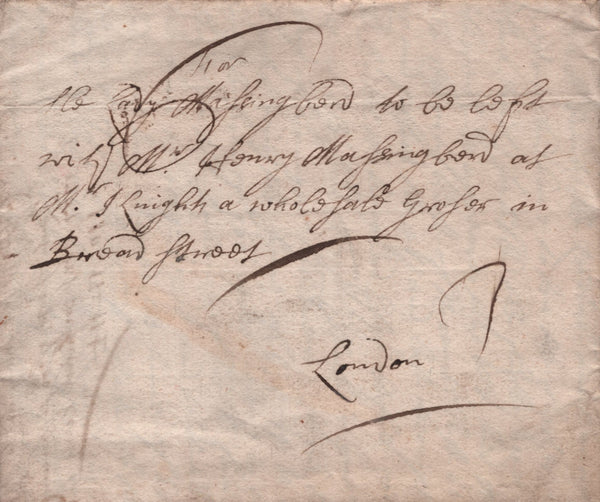 For
the Lady Massingberd to be left
with Mr Henry Massingberd at
Mr Knights a wholesale Groser in
Bread street
London